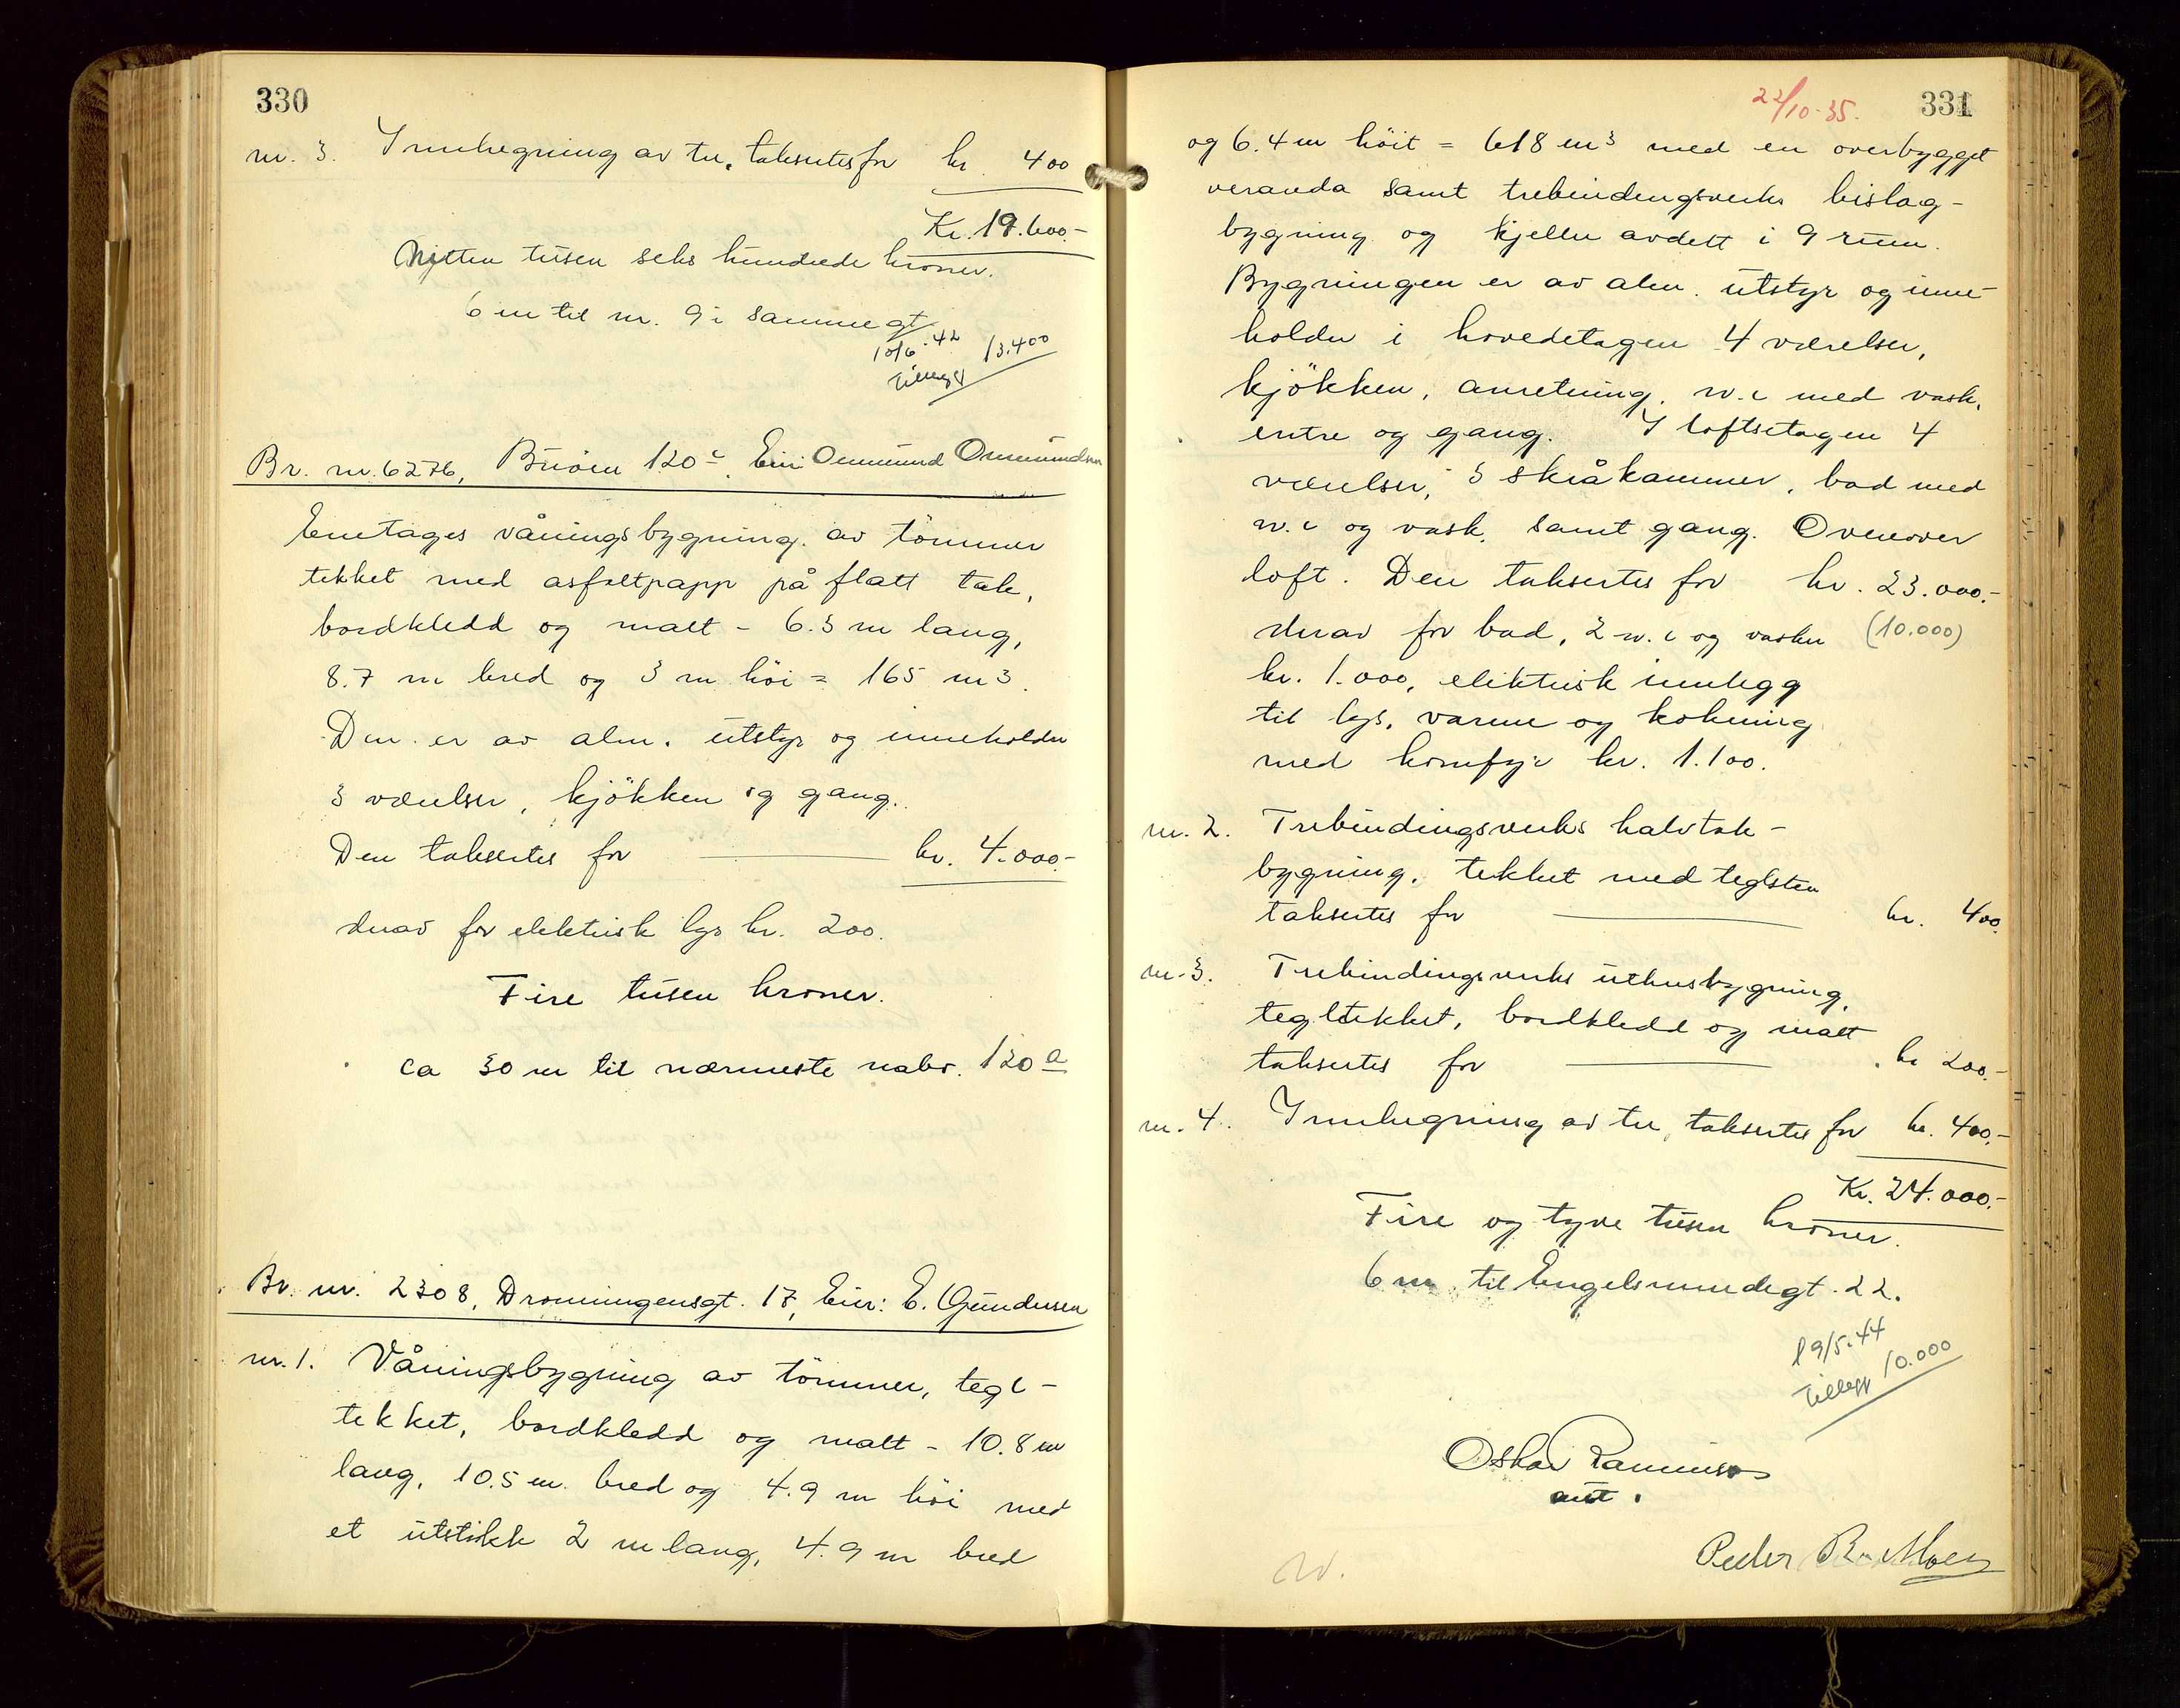 330
nr. 3. Innhegning av tre, taksertes for kr. 400
Kr. 19.600.-
Nitten tusen seks hundrede kroner.
6 m til nr. 9 i samme gt
10/6.42
Tillegg 13.400
Br. nr. 6276, Buöen 120c. Eier Ommund Ommundsen
Enetages våningsbygning av tömmer
tekket med asfaltpapp på flatt tak,
bordkledd og malt - 6.3 m lang,
8.7 m bred og 3 m höi = 165 m3.
Den er av alm. utstyr og inneholder
3 værelser, kjökken og gang.
Den taksertes for kr. 4.000.-
derav for elektrisk lys kr. 200.
Fire tusen kroner.
ca 30 m til nærmeste nabo. 120a
Br. nr. 2308, Dronningensgt. 17, Eier: E. Gundersen
nr. 1. Våningsbygning av tömmer, tegl-
tekket, bordkledd og malt - 10.8 m
lang, 10.5 m. bred og 4.9 m höi med
et utstikk 2 m lang, 4.9 m bred
22/10-35.
331
og 6.4 m höit = 618 m3 med en overbygget
veranda samt trebindingsverks bislag-
bygning og kjeller avdelt i 9 rum.
Bygningen er av alm. utstyr og inne-
holder i hovedetagen 4 værelser,
kjökken, anretning, w.c med vask,
entre og gang. I loftsetagen 4
værelser, 3 skråkammer, bad med
w.c og vask, samt gang. Ovenover
loft. Den taksertes for kr. 23.000.-
derav for bad, 2 w.c og vasker (10.000)
kr. 1.000, elektrisk innlegg
til lys, varme og kokning
med komfyr kr. 1.100.
nr. 2. Trebindingsverks halvtak-
bygning, tekket med teglsten
taksertes for kr. 400.
nr. 3. Trebindingsverks uthusbygning,
tegltekket, bordkledd og malt
taksertes for kr 200.-
nr. 4. Innhegning av tre, taksertes for kr. 400.-
Kr. 24.000.-
Fire og tyve tusen kroner.
6 m til Engelsmindegt. 22.
19/5.44
Tillegg 10.000
Oskar
Peder R. Moen